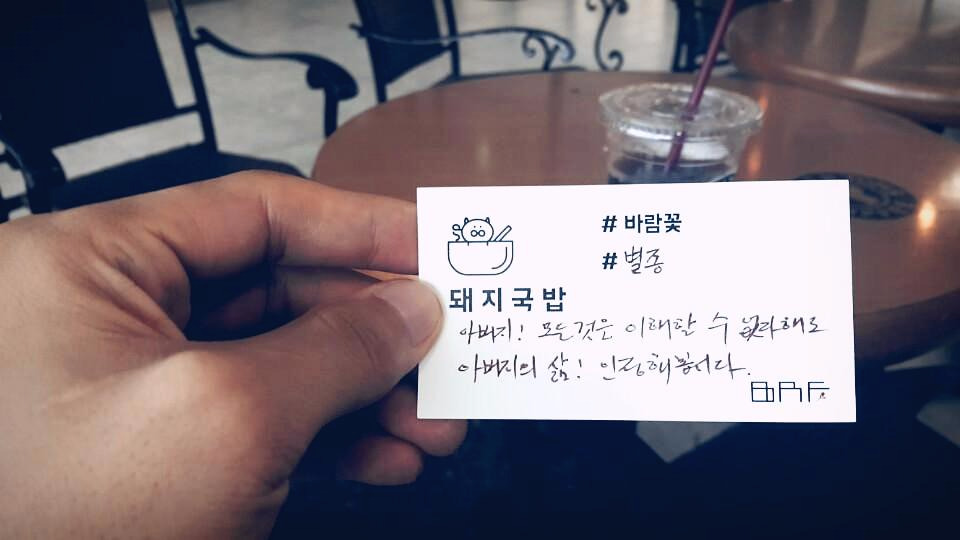 # 바람꽃
# 별종
돼지국밥
아버지! 모든것은 이해할 수 없다해도
아버지의 삶! 인정해봅시다.
BRF